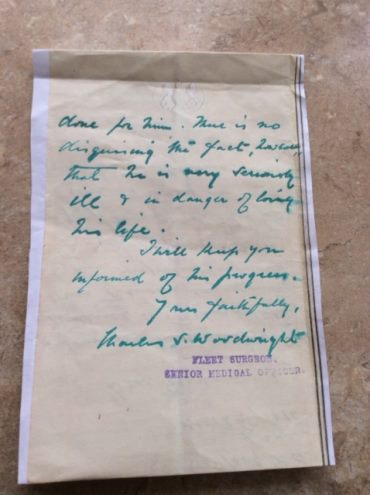 done for him. There is no
disguising the fact, however,
that he is very seriously
ill & in danger of losing
his life.
I will keep you
informed of his progress.
Yours faithfully,
Charles S. Woodwright
FLEET SURGEON.
SENIOR MEDICAL OFFICER.